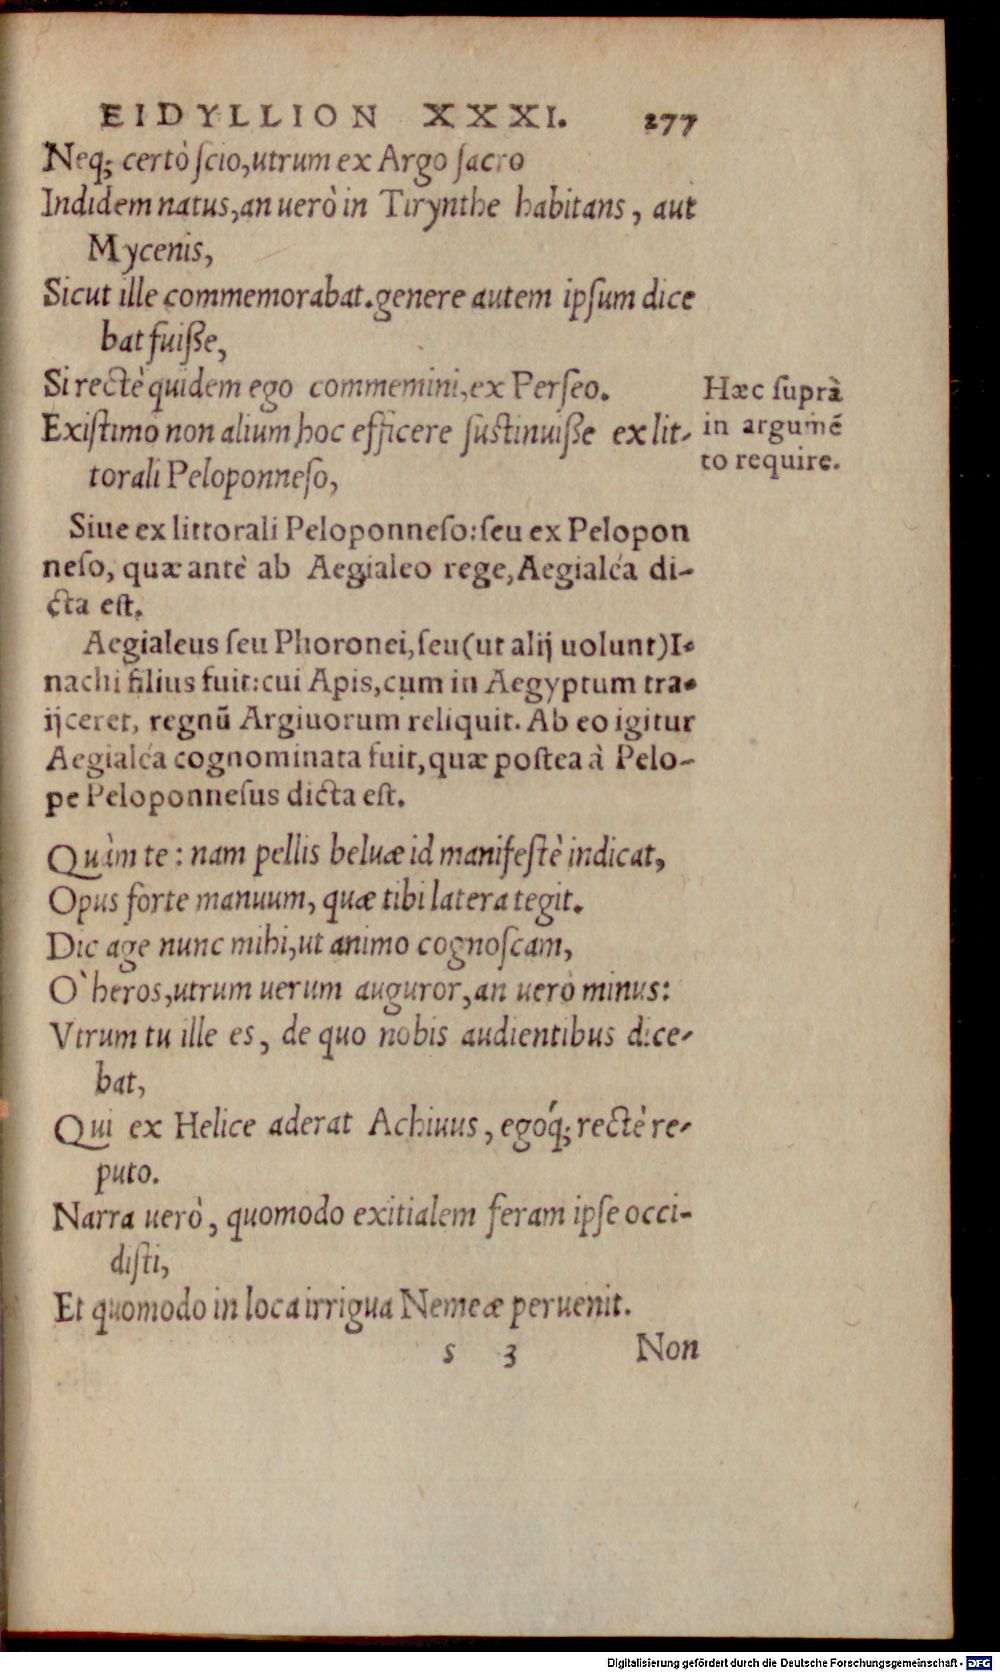 EIDYLLION XXXI. 277
Neq; certò ſcio, utrum ex Argo ſacro
Indidem natus, an uerò in Tirynthe habitans, aut
Mycenis,
Sicut ille commemorabat. genere autem ipſum dice
bat fuiße,
Si rectè quidem ego commemini, ex Perſeo.
Exiſtimo non alium hoc efficere ſuſtinuiße ex lit-
torali Peloponneſo,
Hæc ſuprà
in argumẽ
to require.
Siue ex littorali Peloponneſo: ſeu ex Pelopon
neſo, quæ antè ab Aegialeo rege, Aegialéa di-
cta eſt.
Aegialeus ſeu Phoronei, ſeu (ut alij uolunt) I-
nachi filius fuit: cui Apis, cum in Aegyptum tra-
ijceret, regnũ Argiuorum reliquit. Ab eo igitur
Aegialéa cognominata fuit, quæ poſtea à Pelo-
pe Peloponneſus dicta eſt.
Quàm te: nam pellis beluæ id manifeſtè indicat,
Opus forte manuum, quæ tibi latera tegit.
Dic age nunc mihi, ut animo cognoſcam,
O` heros, utrum uerum auguror, an uerò minus:
Vtrum tu ille es, de quo nobis audientibus dice-
bat,
Qui ex Helice aderat Achiuus, egoq́; rectè re-
puto.
Narra uerò, quomodo exitialem feram ipſe occi-
diſti,
Et quomodo in loca irrigua Nemeæ peruenit.
s 3 Non
Digitalisierung gefördert durch die Deutsche Forschungsgemeinschaft - DFG